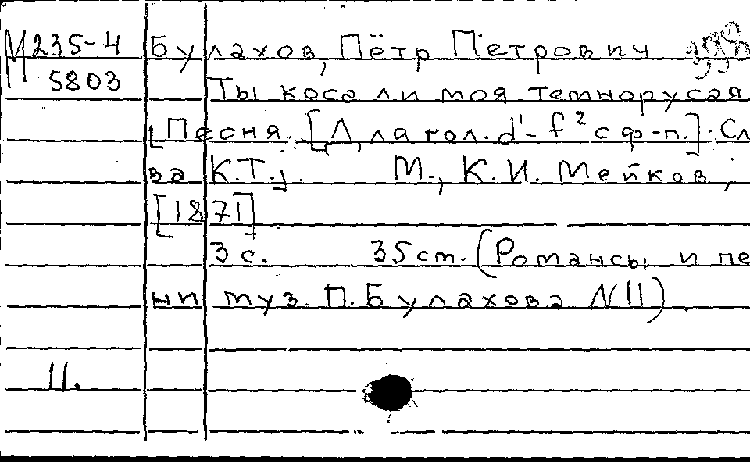 М235-4 Булахов, Пётр Петрович
5803
Ты коса ли моя темнорусая
[Песня. [Для гол. d'-f² с ф-п.]. Сл
ва К.Т.j. М., К.И. Мейков,
[1871]
3 с. 35 cm. (Романсы и пе
ни муз. П. Булахова N11)
11.